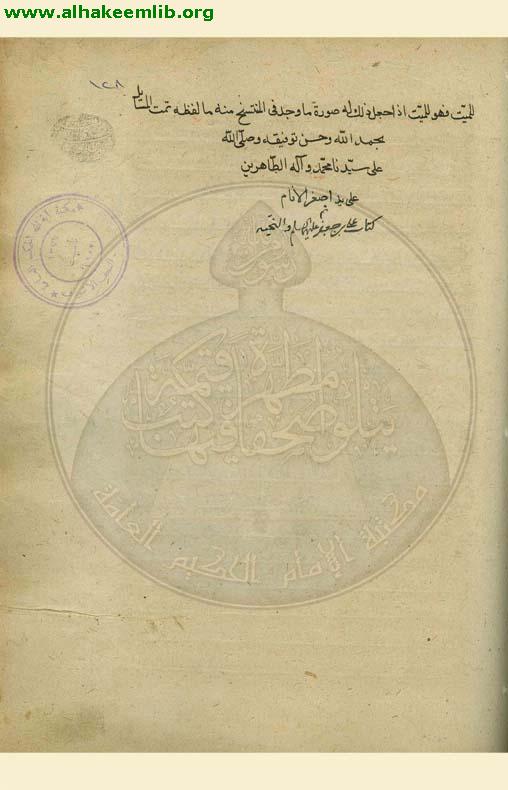 www.alhakeemlib.org
١٢٨
للميت فهو للميت اذا جعل ذلك له صورة ما وجد في المنتسخ منه ما لفظه تمت المسايل
بحمد الله وحسن توفيقه وصلى الله
على سيدنا محمد وآله الطاهرين
على يد اصغر الانام
كتاب علي بن جعفر عليه السلام والتحيه
يتلو صحفا مطهرة فيها كتب قيمة
مكتبة الإمام الحكيم العامة